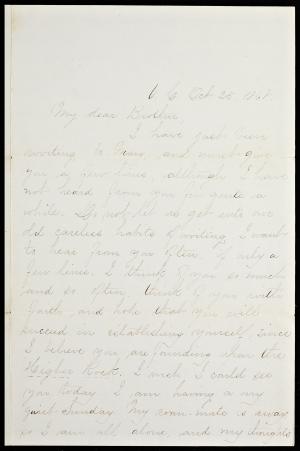 Oct 25 1868.
My dear Brother,
I have just been
writing to and must give
you a few lines, although I have
not heard from you for quite a
while. Do not let us get into our
old careless habits of writing I want
to hear from you often, if only a
few lines. I think of you so much
and so often, think of you with
faith, and hope that you will
succeed in establishing yourself, since
I believe you are founding upon the
Higher Rock. I wish I could see
you today. I am having a very
quiet Sunday. My room-mate is away
so I am all alone, and my thoughts